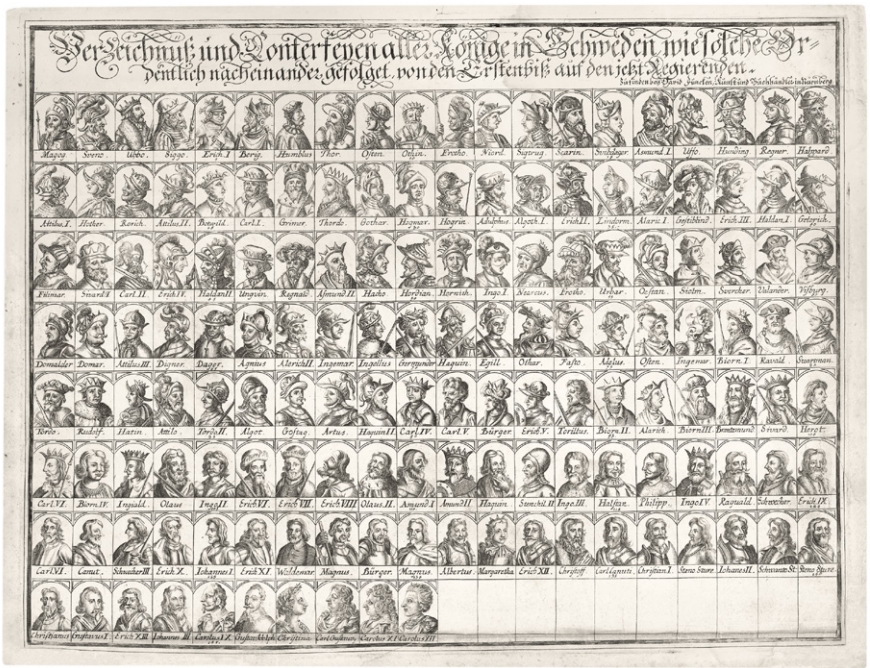 Verzeichnuß und Conterfeyen aller Könige in Schweden wie solche Or-
dentlich nacheinander gefolget, von den Ersten biß auf den jetzt Regierenden.
Zu finden bey David Funcken, Kunst und Buchhändler in Nürnberg
Magog. Sveno. Ubbo. Siggo. Erich. I Berig. Humblus Thor. Osten. Othin. Frotho. Niord. Sigtrug. Scarin. Asmund I. Uffo. Hunding. Regner. Halward
Attilus. I. Hother. Rorich. Attilus II. Botvild. Carl I. Grimer. Thordo. Gothar. Hogmar. Hogrin Adulphus Algoth. I. Erich II. Lindorm. Alaric I. Gestiblind. Erich III. Haldan I. Geterich.
Filmar. Carl. II Erich IV. Haldan II Unguin. Regnald Asmund II. Hako. Hordian. Hornich. Ingo. I Nearcus. Frotho. Urbar. Ostan. Fiolm. Svercher. Valander. Visburg.
Domalder Domar. Attilus III. Digner. Dager. Agnius Alerich II Ingemar. Ingellius Germunder Haquin. Egill Othar. Fasto. Adelus. Osten. Ingemar. Biorn. I. Ravald.
Tordo. Rudolf. Hatin Attilo. Tordo II. Algot. Gostag. Artus. Haquin II. Carl. IV. Carl. V. Bürger. Erich. V. Torillus. Biorn. II. Alarich. Biorn III. Sivard. Herot.
Carl. VI. Biorn. IV. Ingiald. Olaus Ingo. II Erich VI. Erich VII. Erich VIII Olaus. II. Amund. I Amund II Haquin Stenchil. II Ingo. III. Halstan. Philipp. Ingo IV. Raguald. Schwecher. Erich. IX.
Carl VI. Canut. Schwacher III. Erich X. Iohannes I. Erich XI. Waldemar. Magnus. Bürger. Magnus. Albertus. Margaretha Erich. XII. Christoff Carl Cgnuti. Christian I. Steno Sture. Iohanes II. Schwante St: Steno Sture.
Christianus Gustavus I. Erich XIII. Iohannes III Carolus IX Gustav Adolph Christina Carl Gustavus Carolus XI Carolus XII